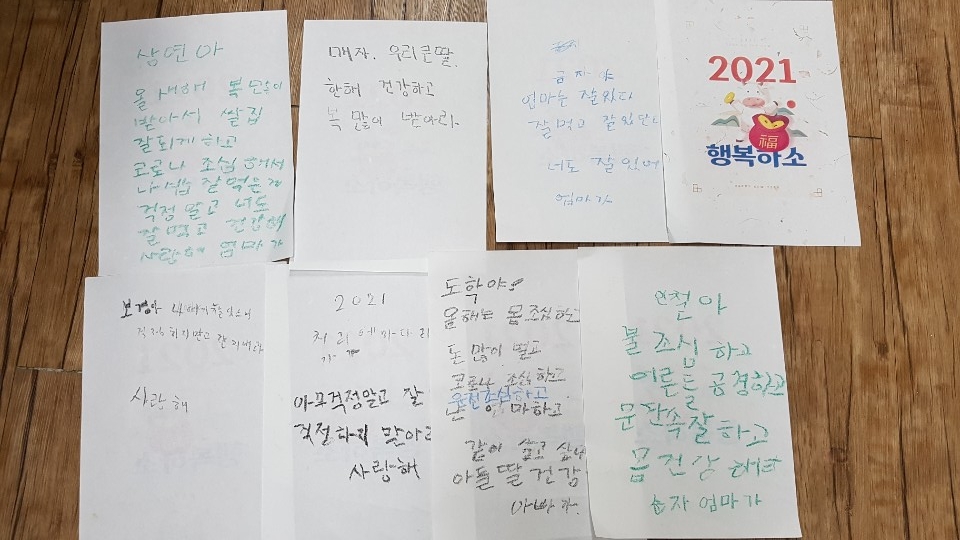 삼연아
올 새해 복 많이
받아서 쌀집
잘되게 하고
코로나 조심해서
잘 먹은 게
걱정 말고 너도
잘 먹고 건강해
사랑해 엄마가
매자. 우리 큰딸.
한해 건강하고
복 많이 받아라.
야
엄마는 잘있다
잘먹고 잘있단다
너도 잘있어
엄마가
2021
福
행복하소
보경아
직정하지말고 잘지내라
사랑해
2021
아무걱정말고 잘
걱정하지 말아라
사랑해
도학아
올해는 몸조심하고
돈 많이 벌고
코로나 조심하고
운전조심하고
하고
같이 살고 싶다
아들 딸 건강
아빠가.
연철아
불조심하고
어른들 공경하고
문단속잘하고
몸건강해라
순자 엄마가